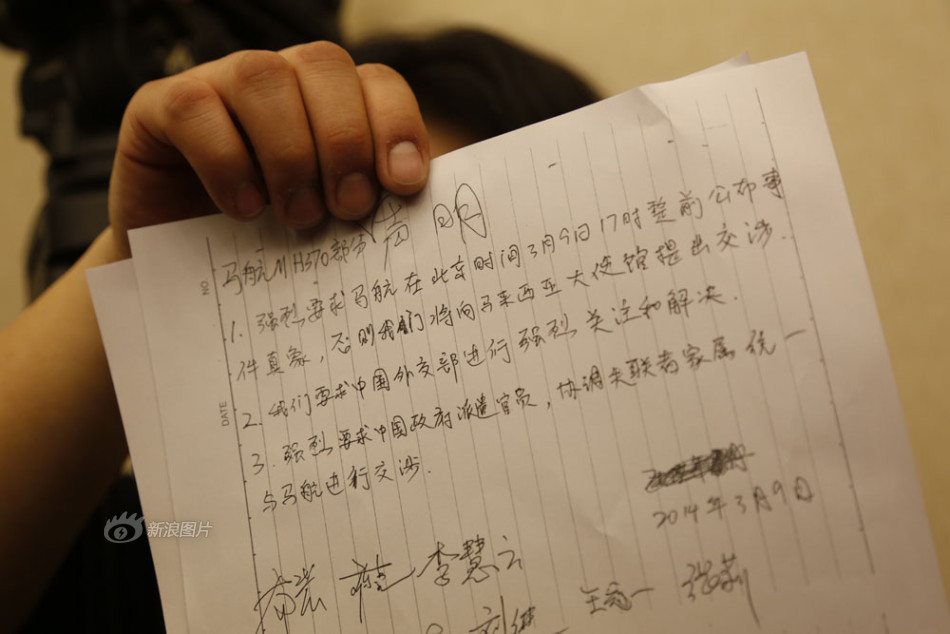 声明
马航MH370部分
1. 强烈要求马航在北京时间3月9日17时整前公布事
件真象，否则我们将向马来西亚大使馆提出交涉.
2. 我们要求中国外交部进行强烈关注和解决.
3. 强烈要求中国政府派遣官员，协调失联者家属统一
与马航进行交涉.
2014年3月9日
李慧云
NO
DATE
新浪图片